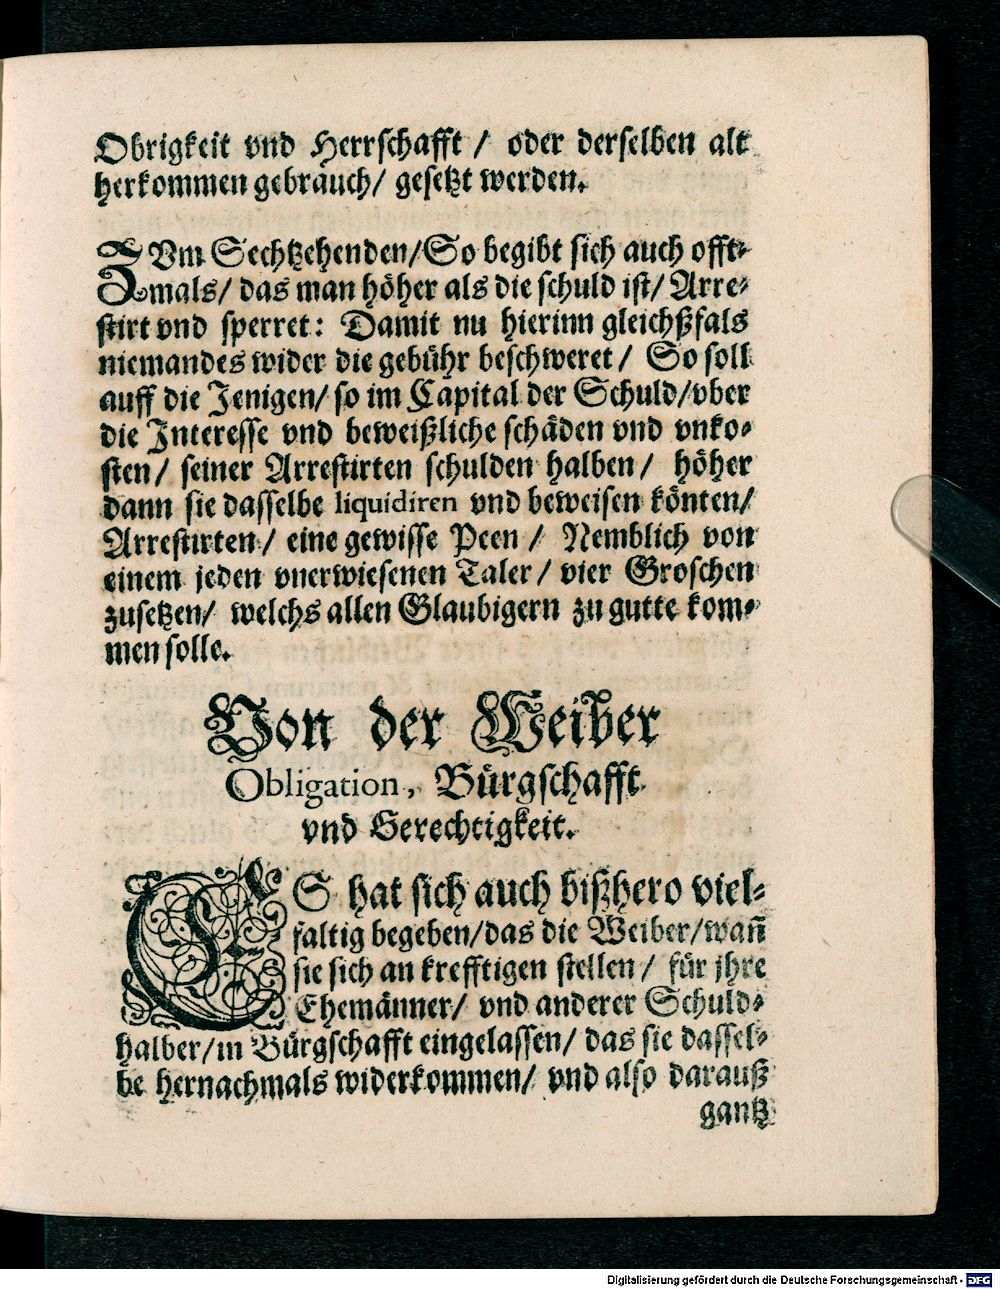 Obrigkeit vnd Herrschafft / oder derselben alt
herkommen gebrauch/ gesetzt werden.
ZVm Sechtzehenden/So begibt sich auch offt-
mals/ das man höher als die schuld ist/ Arre-
stirt vnd sperret: Damit nu hierinn gleichßfals
niemandes wider die gebühr beschweret / So soll
auff die Jenigen/ so im Capital der Schuld/vber
die Interesse vnd beweißliche schäden vnd vnko-
sten/ seiner Arrestirten schulden halben/ höher
dann sie dasselbe liquidiren vnd beweisen könten/
Arrestirten/ eine gewisse Peen / Nemblich von
einem jeden vnerwiesenen Taler/ vier Groschen
zusetzen/ welchs allen Glaubigern zu gutte kom-
men solle.
Von der Weiber
Obligation, Bürgschafft
vnd Gerechtigkeit.
ES hat sich auch bißhero viel-
faltig begeben/das die Weiber/wañ
sie sich an krefftigen stellen / für jhre
Ehemänner/ vnd anderer Schuld-
halber/in Bürgschafft eingelassen/ das sie dassel-
be hernachmals widerkommen/ vnd also darauß
gantz
Digitalisierung gefördert durch die Deutsche Forschungsgemeinschaft - DFG